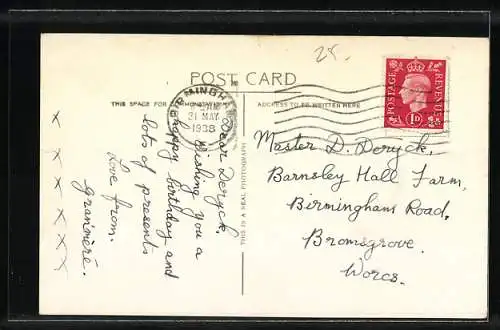 25.
POST CARD
THIS SPACE FOR COMMUNICATION
ADDRESS TO BE WRITTEN HERE
BIRMINGHAM
31 MAY
1938
POSTAGE
REVENUE
1D
Dear Deryck,
Wishing you a
happy birthday and
lots of presents
Love from.
x x x x x x
THIS IS A REAL PHOTOGRAPH
Master D. Deryck,
Barnsley Hall Farm,
Birmingham Road,
Bromsgrove.
Worcs.